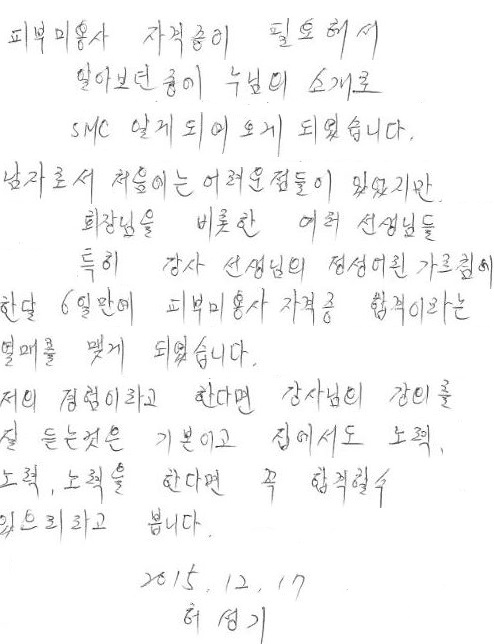 피부미용사 자격증이 필요해서
알아보던중에 누님의 소개로
SMC 알게되어 오게 되었습니다.
남자로서 처음에는 어려운점들이 있었지만
회장님을 비롯한 여러 선생님들
특히 강사 선생님의 정성어린 가르침에
한달 6일만에 피부미용사 자격증 합격이라는
열매를 맺게 되었습니다.
저의 경험이라고 한다면 강사님의 강의를
잘 듣는것은 기본이고 집에서도 노력,
노력, 노력을 한다면 꼭 합격할수
있으리라고 봅니다.
2015. 12. 17
허성기